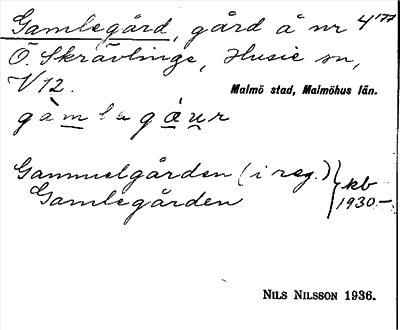 Gamlegård, gård å nr 4¹⁷⁷
Ö. Skrävlinge, Husie sn,
V 12.
Malmö stad, Malmöhus län.
gàmla gáur
Gammelgården (i reg.) } kb
Gamlegården 1930–
NILS NILSSON 1936.